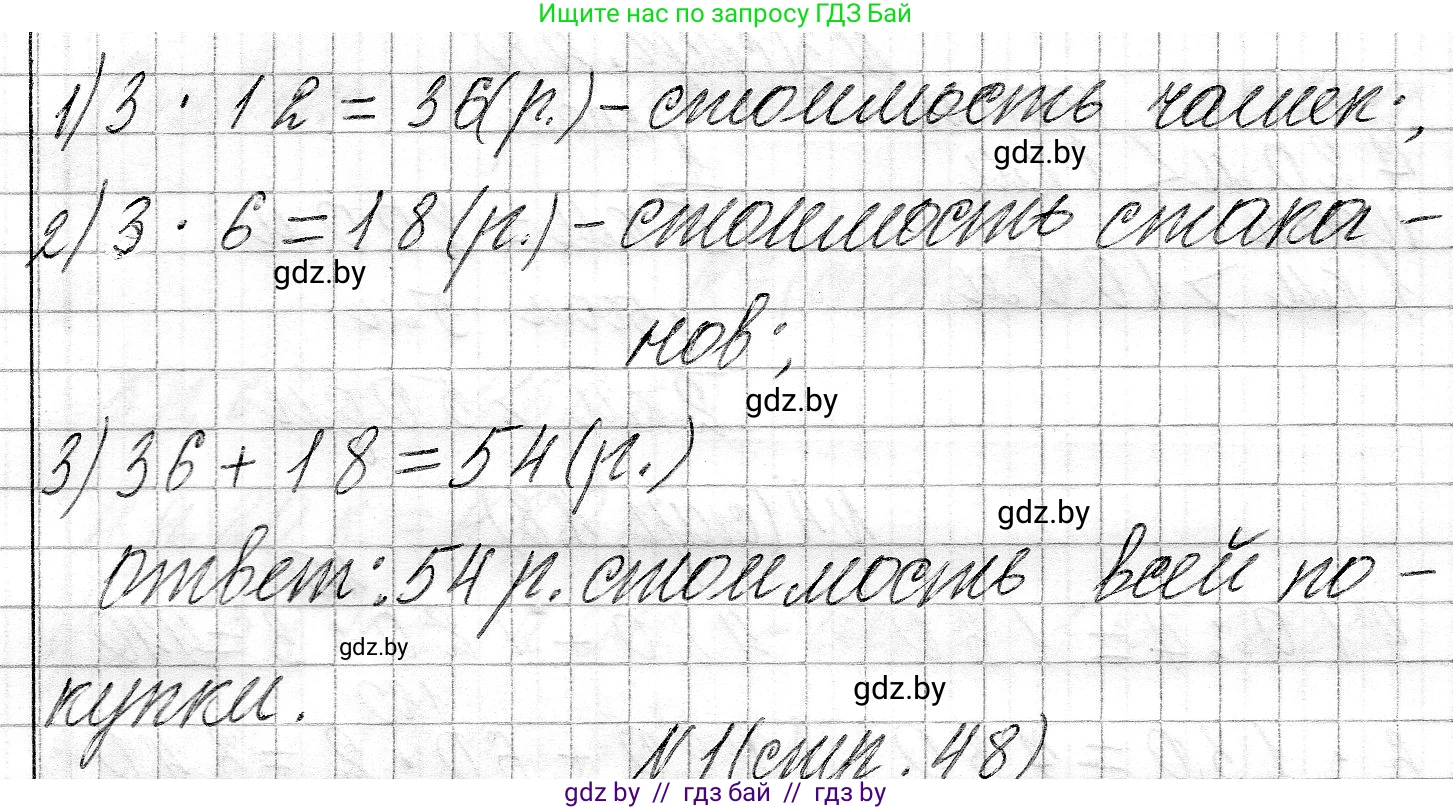 Ищите нас по запросу ГДЗ Бай
1) 3 · 12 = 36(р.) – стоимость чашек;
gdz.by
2) 3 · 6 = 18 (р.) – стоимость стака –
gdz.by
нов;
gdz.by
3) 36 + 18 = 54 (р.)
gdz.by
ответ: 54 р. стоимость всей по –
gdz.by
купки.
gdz.by
N 1 (стр. 48)
gdz by // гдз бай // гдз by